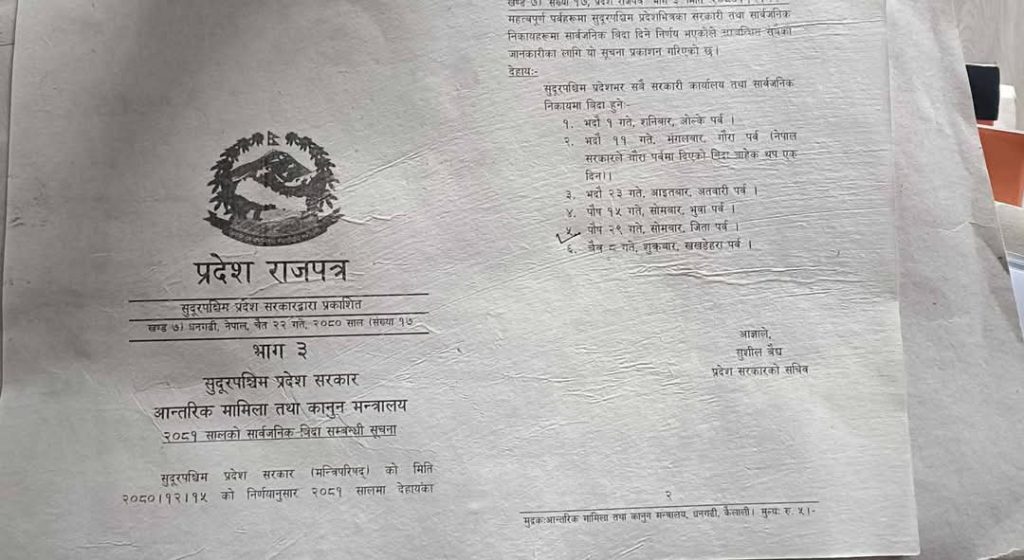 प्रदेश राजपत्र
सुदूरपश्चिम प्रदेश सरकारद्वारा प्रकाशित
खण्ड ७) धनगढी, नेपाल, चैत २२ गते, २०८० साल (संख्या १७
भाग ३
सुदूरपश्चिम प्रदेश सरकार
आन्तरिक मामिला तथा कानुन मन्त्रालय
२०८१ सालको सार्वजनिक बिदा सम्बन्धी सूचना
सुदूरपश्चिम प्रदेश सरकार (मन्त्रिपरिषद्) को मिति
२०८०।१२।१५ को निर्णयानुसार २०८१ सालमा देहायका
खण्ड ७) संख्या १७, प्रदेश राजपत्र भाग ३ मिति
महत्वपूर्ण पर्वहरूमा सुदूरपश्चिम प्रदेशभित्रका सरकारी तथा सार्वजनिक
निकायहरूमा सार्वजनिक बिदा दिने निर्णय भएकोले सम्बन्धित सबैको
जानकारीका लागि यो सूचना प्रकाशन गरिएको छ।
देहायः-
सुदूरपश्चिम प्रदेशभर सबै सरकारी कार्यालय तथा सार्वजनिक
निकायमा बिदा हुनेः-
१. भदौ १ गते, शनिबार, ओल्के पर्व ।
२. भदौ ११ गते, मंगलबार, गौरा पर्व (नेपाल
सरकारले गौरा पर्वमा दिएको बिदा बाहेक थप एक
दिन)।
३. भदौ २३ गते, आइतबार, अतवारी पर्व ।
४. पौष १५ गते, सोमबार, भुवा पर्व ।
५. पौष २९ गते, सोमबार, जिता पर्व ।
६. चैत्र ८ गते, शुक्रबार, खखडेहरा पर्व ।
आज्ञाले,
सुशील वैद्य
प्रदेश सरकारको सचिव
२
मुद्रकःआन्तरिक मामिला तथा कानुन मन्त्रालय, धनगढी, कैलाली। मुल्यः रु. ५।-